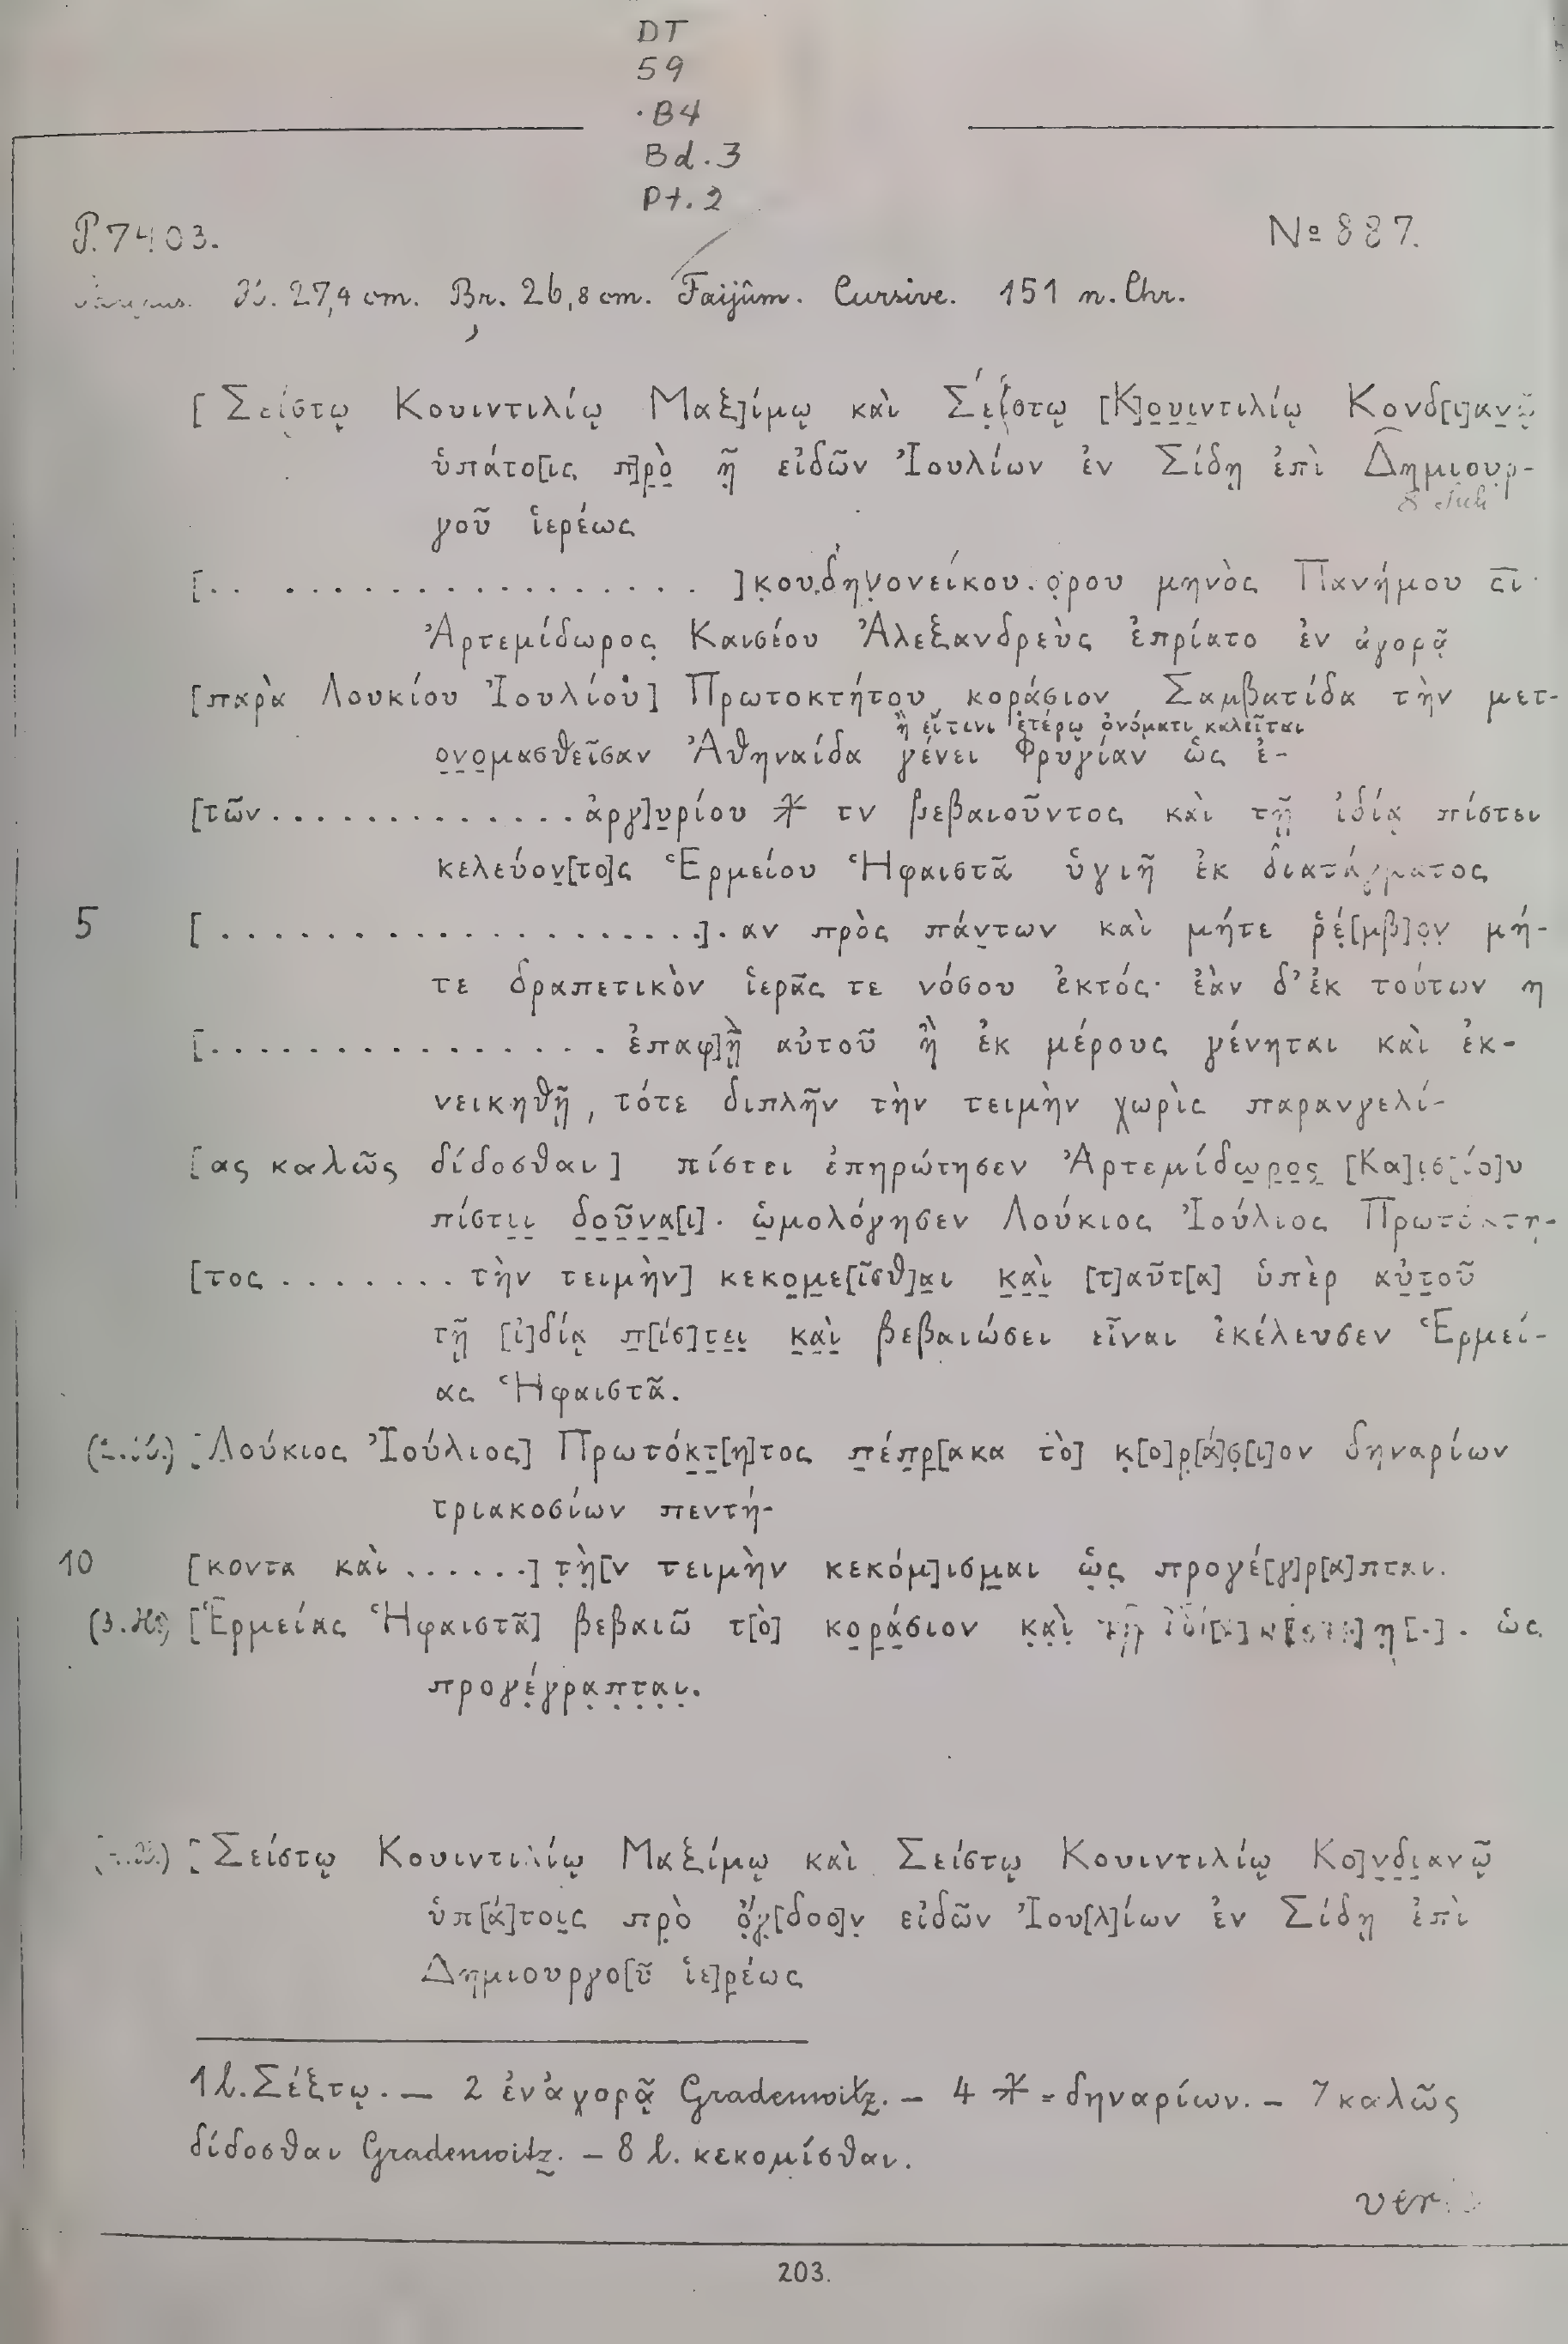 DT
59
.B4
Bd.3
Pt.2
P.7403.
No 887.
27,4 cm. Br. 26,8 cm. Faijûm. Cursive. 151 n. Chr.
[Σείστῳ Κουιντιλίῳ Μαξ]ίμῳ καὶ Σε̣ί̣στῳ [Κ]ο̣υ̣ι̣ντιλίῳ Κονδ[ι]αν̣ῷ̣
ὑπάτο[ις π]ρ̣ὸ̣ η̣̄ εἰδῶν Ἰουλίων ἐν Σίδῃ ἐπὶ Δημι̣ου̣ρ̣-
γοῦ ἱερέως
[.. ................ ]κ̣ου.δην̣ονείκου.ο̣ρου μηνὸς Πανήμου ς̅ι̅
Ἀρτεμίδωρος̣ Καισίου Ἀλεξανδρεὺς ἐπρίατο ἐν ἀγορᾷ
[παρὰ Λουκίου Ἰουλίου] Πρωτοκτήτου κοράσιον Σαμβατίδα τὴν μετ-
ἢ εἴτινι ἑτέρῳ ὀνόματι καλεῖται
ο̣ν̣ο̣μασθεῖσαν Ἀθηναίδα γένει Φρυγίαν ὡς ἐ-
[τῶν.............ἀργ]υ̣ρίου ⚹ τν βεβαιοῦντος καὶ τῇ ἰδίᾳ πίστει
κελεύον̣[το]ς Ἑρμείου Ἡφαιστᾶ ὑγιῆ ἐκ διατάγματος
5 [.....................].αν πρὸς πάν̣των καὶ μήτε ῥέ̣[μβ]ο̣ν̣ μή-
τε δραπετικὸν ἱερᾶς τε νόσου ἐκτός· ἐὰν δ’ἐκ τούτων η
[................. ἐπαφ]ῇ̣ αὐτοῦ ἢ ἐκ μέρους γένηται καὶ ἐκ-
νεικηθῇ, τότε διπλῆν τὴν τειμὴν χωρὶς παρανγελί-
[ας καλῶς δίδοσθαι] πίστει ἐπηρώτησεν Ἀρτεμίδω̣ρ̣ο̣ς̣ [Κα]ι̣σ̣[ίο]υ
πίστι̣ι̣ δ̣ο̣ῦ̣ν̣α̣[ι]. ὡ̣μολόγησεν Λούκιος Ἰούλιος Πρωτόκτη-
[τος ........ τὴν τειμὴν] κεκο̣μ̣ε[ῖσθ]α̣ι κ̣α̣ὶ̣ [τ]αῦτ[α] ὑπὲρ αὐ̣τ̣οῦ
τῇ [ἰ]δίᾳ π̣[ίσ]τ̣ε̣ι̣ κ̣α̣ὶ̣ βεβαιώσει εἶναι ἐκέλευσεν Ἑρμεί-
ας Ἡφαιστᾶ.
[Λούκιος Ἰούλιος] Πρωτόκ̣τ̣[η]τος π̣έπ̣ρ̣[ακα τὸ] κ̣[ο]ρ̣[ά]σ̣[ι]ον δηναρίων
τριακοσίων πεντή-
10 [κοντα καὶ ......] τ̣ὴ̣[ν τειμὴν κεκόμ]ισμ̣αι ὡ̣ς̣ προγέ[γ]ρ[α]πται.
[Ἑρμείας Ἡφαιστᾶ] βεβαιῶ τ[ὸ] κο̣ρ̣ά̣σιον κ̣α̣ὶ̣ τῇ ἰδί[ᾳ] η̣[.]. ὡς
προγέ̣γρα̣π̣τ̣α̣ι̣.
[Σείστῳ Κουιντιλίῳ Μαξίμῳ καὶ Σείστῳ Κουιντιλίῳ Κο]ν̣δ̣ι̣ανῷ
ὑπ[ά]τοι̣ς πρ̣ὸ ὄ̣γ̣[δοο]ν̣ εἰδῶν Ἰου[λ]ίων ἐν Σίδῃ ἐπὶ
Δημιουργο[ῦ ἱε]ρ̣έως
1 l. Σέξτῳ. — 2 ἐν ἀγορᾷ Gradenwitz. — 4 ⚹ = δηναρίων. — 7 καλῶς
δίδοσθαι Gradenwitz. — 8 l. κεκομίσθαι.
203.